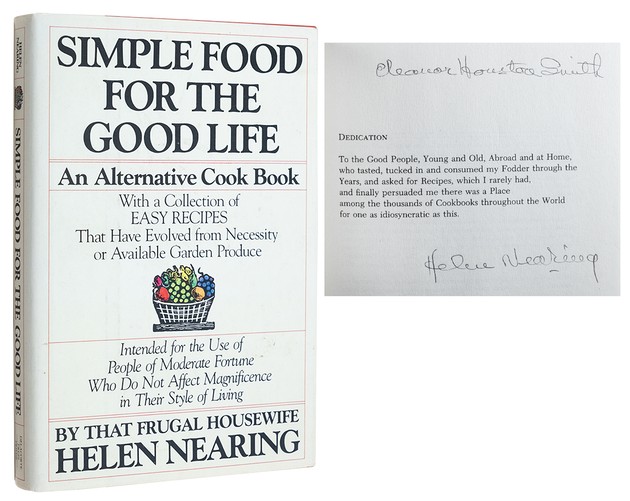 HELEN
NEARING
SIMPLE FOOD FOR THE GOOD LIFE
SIMPLE FOOD
FOR THE
GOOD LIFE
An Alternative Cook Book
With a Collection of
EASY RECIPES
That Have Evolved from Necessity
or Available Garden Produce
Intended for the Use of
People of Moderate Fortune
Who Do Not Affect Magnificence
in Their Style of Living
BY THAT FRUGAL HOUSEWIFE
HELEN NEARING
Eleanor Houston Smith
DEDICATION
To the Good People, Young and Old, Abroad and at Home,
who tasted, tucked in and consumed my Fodder through the
Years, and asked for Recipes, which I rarely had,
and finally persuaded me there was a Place
among the thousands of Cookbooks throughout the World
for one as idiosyncratic as this.
Helen Nearing